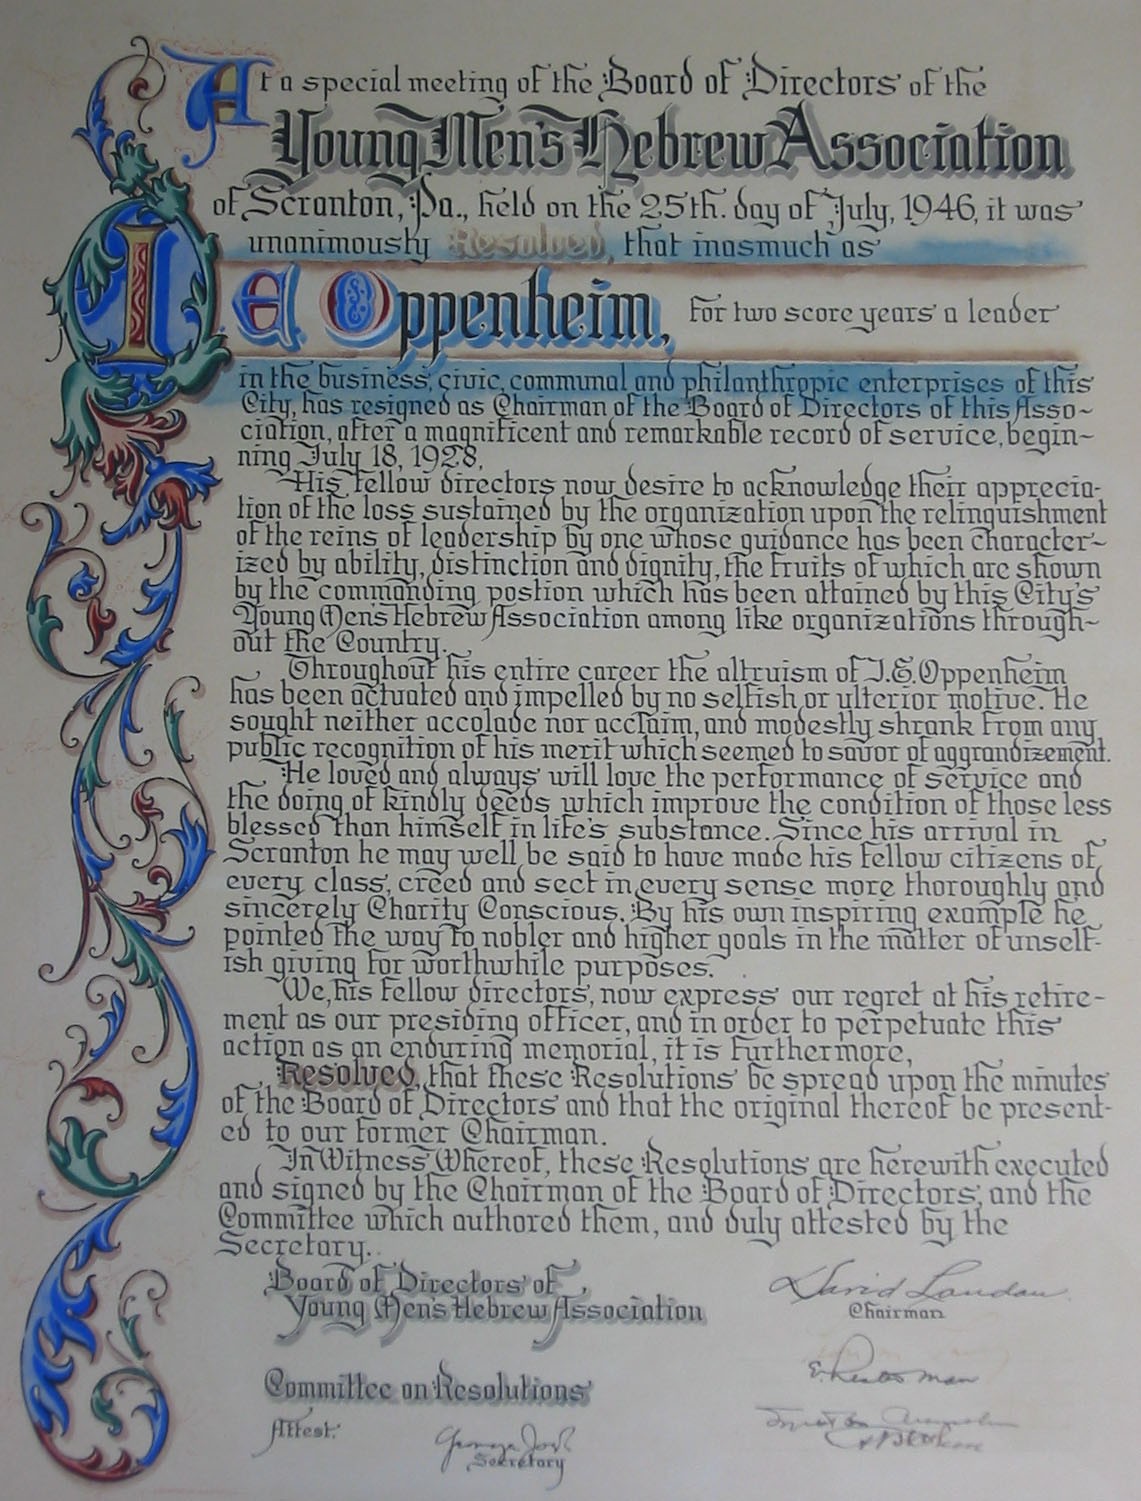 At a special meeting of the Board of Directors of the
Young Men's Hebrew Association
of Scranton, Pa., held on the 25th. day of July, 1946, it was
unanimously Resolved, that inasmuch as
I E Oppenheim, for two score years a leader
in the business, civic, communal and philanthropic enterprises of this
City, has resigned as Chairman of the Board of Directors of this Asso-
ciation, after a magnificent and remarkable record of service, begin-
ning July 18, 1928,
His fellow directors now desire to acknowledge their apprecia-
tion of the loss sustained by the organization upon the relinquishment
of the reins of leadership by one whose guidance has been character-
ized by ability, distinction and dignity, the fruits of which are shown
by the commanding postion which has been attained by this City's
Young Men's Hebrew Association among like organizations through-
out the Country.
Throughout his entire career the altruism of I.E. Oppenheim
has been actuated and impelled by no selfish or ulterior motive. He
sought neither accolade nor acclaim, and modestly shrank from any
public recognition of his merit which seemed to savor of aggrandizement.
He loved and always will love the performance of service and
the doing of kindly deeds which improve the condition of those less
blessed than himself in life's substance. Since his arrival in
Scranton he may well be said to have made his fellow citizens of
every class, creed and sect in every sense more thoroughly and
sincerely Charity Conscious. By his own inspiring example he
pointed the way to nobler and higher goals in the matter of unself-
ish giving for worthwhile purposes.
We, his fellow directors, now express our regret at his retire-
ment as our presiding officer, and in order to perpetuate this
action as an enduring memorial, it is furthermore,
Resolved, that these Resolutions be spread upon the minutes
of the Board of Directors and that the original thereof be present-
ed to our former Chairman.
In Witness Whereof, these Resolutions are herewith executed
and signed by the Chairman of the Board of Directors, and the
Committee which authored them, and duly attested by the
Secretary.
Board of Directors of
Young Men's Hebrew Association
David Landau
Chairman
Committee on Resolutions
Attest:
Secretary